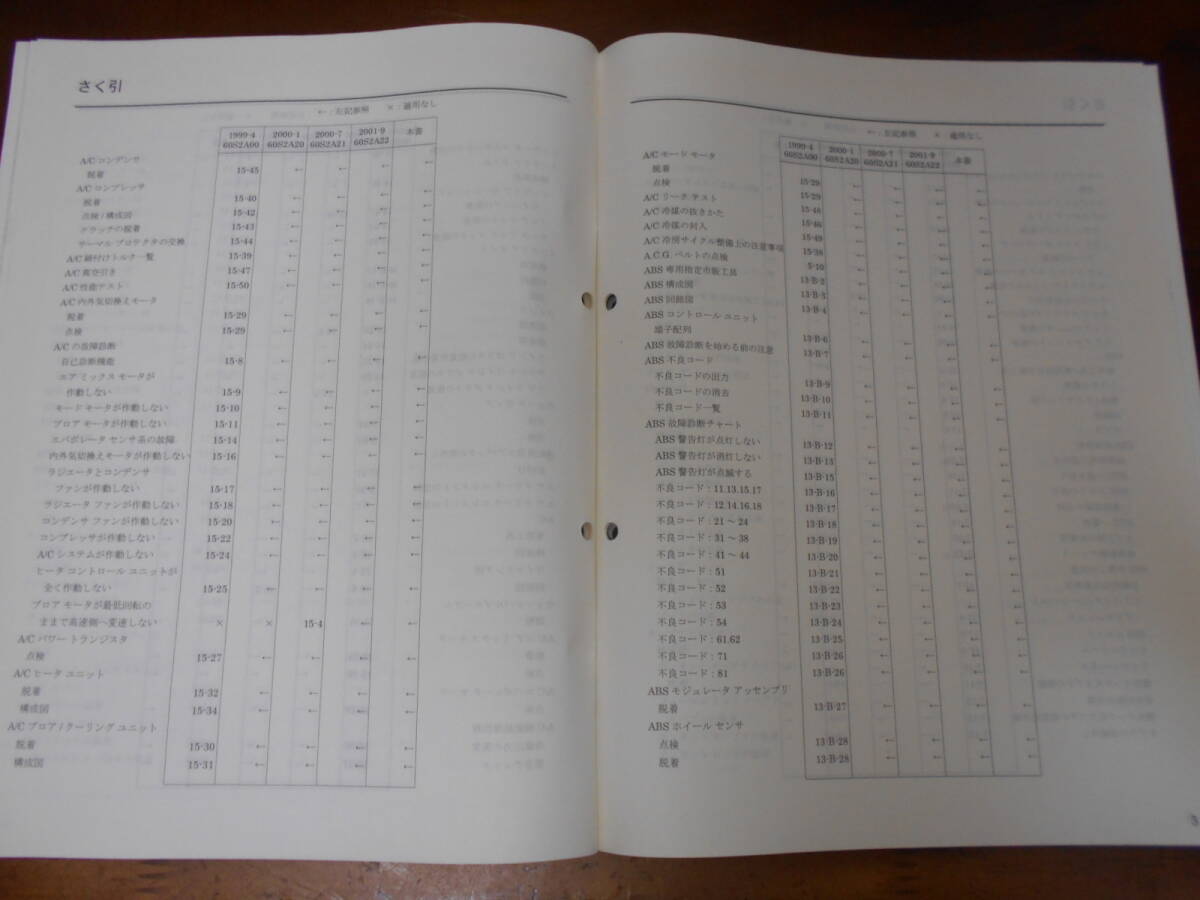 さく引
←：左記参照　×：適用なし
1999-4 2000-1 2000-7 2001-9 本書
60S2A00 60S2A20 60S2A21 60S2A22
A/C コンデンサ
脱着 15-45 ← ← ← ←
A/C コンプレッサ
脱着 15-40 ← ← ← ←
点検 / 構成図 15-42 ← ← ← ←
クラッチの脱着 15-43 ← ← ← ←
サーマル プロテクタの交換 15-44 ← ← ← ←
A/C 締付けトルク一覧 15-39 ← ← ← ←
A/C 真空引き 15-47 ← ← ← ←
A/C 性能テスト 15-50 ← ← ← ←
A/C 内外気切換えモータ
脱着 15-29 ← ← ← ←
点検 15-29 ← ← ← ←
A/C の故障診断
自己診断機能 15-8 ← ← ← ←
エア ミックス モータが
作動しない 15-9 ← ← ← ←
モード モータが作動しない 15-10 ← ← ← ←
ブロア モータが作動しない 15-11 ← ← ← ←
エバポレータ センサ系の故障 15-14 ← ← ← ←
内外気切換えモータが作動しない 15-16 ← ← ← ←
ラジエータとコンデンサ
ファンが作動しない 15-17 ← ← ← ←
ラジエータ ファンが作動しない 15-18 ← ← ← ←
コンデンサ ファンが作動しない 15-20 ← ← ← ←
コンプレッサが作動しない 15-22 ← ← ← ←
A/C システムが作動しない 15-24 ← ← ← ←
ヒータ コントロール ユニットが
全く作動しない 15-25 ← ← ← ←
ブロア モータが最低回転の
ままで高速側へ変速しない × × 15-4 ← ←
A/C パワー トランジスタ
点検 15-27 ← ← ← ←
A/C ヒータ ユニット
脱着 15-32 ← ← ← ←
構成図 15-34 ← ← ← ←
A/C ブロア / クーリング ユニット
脱着 15-30 ← ← ← ←
構成図 15-31 ← ← ← ←
←：左記参照　×：適用なし
1999-4 2000-1 2000-7 2001-9 本書
60S2A00 60S2A20 60S2A21 60S2A22
A/C モード モータ
脱着 15-29 ← ← ← ←
点検 15-29 ← ← ← ←
A/C リーク テスト 15-48 ← ← ← ←
A/C 冷媒の抜きかた 15-46 ← ← ← ←
A/C 冷媒の封入 15-49 ← ← ← ←
A/C 冷房サイクル整備上の注意事項 15-38 ← ← ← ←
A.C.G. ベルトの点検 5-10 ← ← ← ←
ABS 専用指定市販工具 13-B-2 ← ← ← ←
ABS 構成図 13-B-3 ← ← ← ←
ABS 回路図 13-B-4 ← ← ← ←
ABS コントロール ユニット
端子配列 13-B-6 ← ← ← ←
ABS 故障診断を始める前の注意 13-B-7 ← ← ← ←
ABS 不良コード
不良コードの出力 13-B-9 ← ← ← ←
不良コードの消去 13-B-10 ← ← ← ←
不良コード一覧 13-B-11 ← ← ← ←
ABS 故障診断チャート
ABS 警告灯が点灯しない 13-B-12 ← ← ← ←
ABS 警告灯が消灯しない 13-B-13 ← ← ← ←
ABS 警告灯が点滅する 13-B-15 ← ← ← ←
不良コード：11.13.15.17 13-B-16 ← ← ← ←
不良コード：12.14.16.18 13-B-17 ← ← ← ←
不良コード：21 ～ 24 13-B-18 ← ← ← ←
不良コード：31 ～ 38 13-B-19 ← ← ← ←
不良コード：41 ～ 44 13-B-20 ← ← ← ←
不良コード：51 13-B-21 ← ← ← ←
不良コード：52 13-B-22 ← ← ← ←
不良コード：53 13-B-23 ← ← ← ←
不良コード：54 13-B-24 ← ← ← ←
不良コード：61.62 13-B-25 ← ← ← ←
不良コード：71 13-B-26 ← ← ← ←
不良コード：81 13-B-26 ← ← ← ←
ABS モジュレータ アッセンブリ
脱着 13-B-27 ← ← ← ←
ABS ホイール センサ
点検 13-B-28 ← ← ← ←
脱着 13-B-28 ← ← ← ←
3